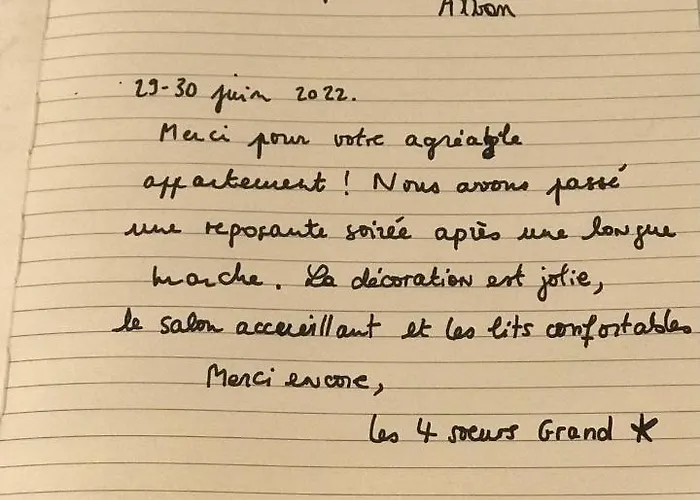 Alban
29-30 juin 2022.
Merci pour votre agréable
appartement ! Nous avons passé
une reposante soirée après une longue
marche. La décoration est jolie,
le salon accueillant et les lits confortables
Merci encore,
Les 4 soeurs Grand *